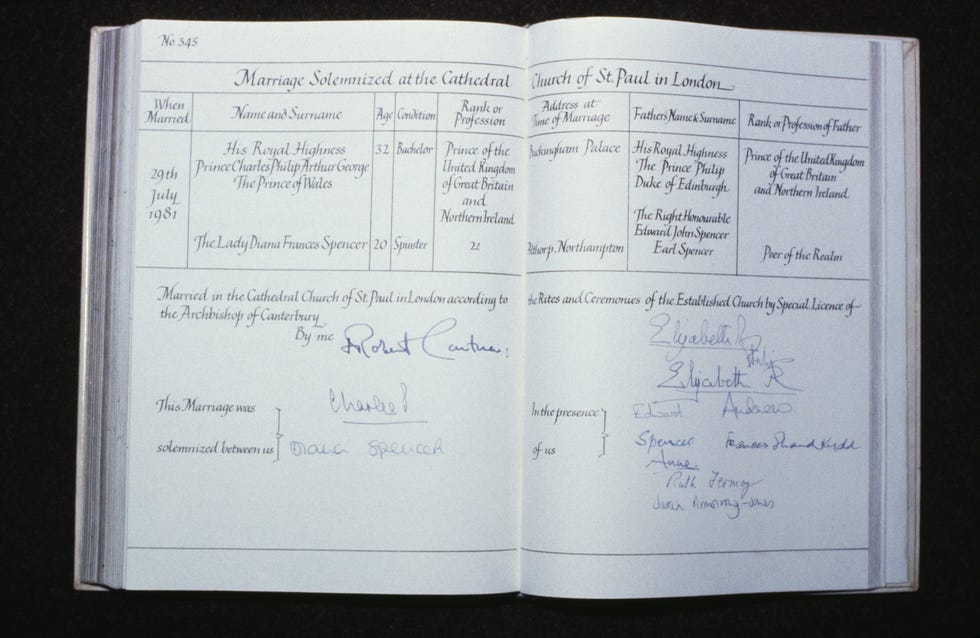 No. 345
Marriage Solemnized at the Cathedral Church of St. Paul in London
When Married
Name and Surname
Age
Condition
Rank or Profession
Address at Time of Marriage
Father's Name & Surname
Rank or Profession of Father
29th
July
1981
His Royal Highness
Prince Charles Philip Arthur George
The Prince of Wales
32
Bachelor
Prince of the
United Kingdom
of Great Britain
and
Northern Ireland
Buckingham Palace
His Royal Highness
The Prince Philip
Duke of Edinburgh
Prince of the United Kingdom
of Great Britain
and Northern Ireland
The Lady Diana Frances Spencer
20
Spinster
Althorp, Northampton
The Right Honourable
Edward John Spencer
Earl Spencer
Peer of the Realm
Married in the Cathedral Church of St. Paul in London according to the Rites and Ceremonies of the Established Church by Special Licence of
the Archbishop of Canterbury
By me
Robert Cantuar:
This Marriage was
solemnized between us
Charles P
Diana Spencer
In the presence
of us
Elizabeth R
Philip
Elizabeth R
Edward Andrew
Spencer Frances Shand Kydd
Anne.
Ruth Fermoy
Sarah Armstrong-Jones